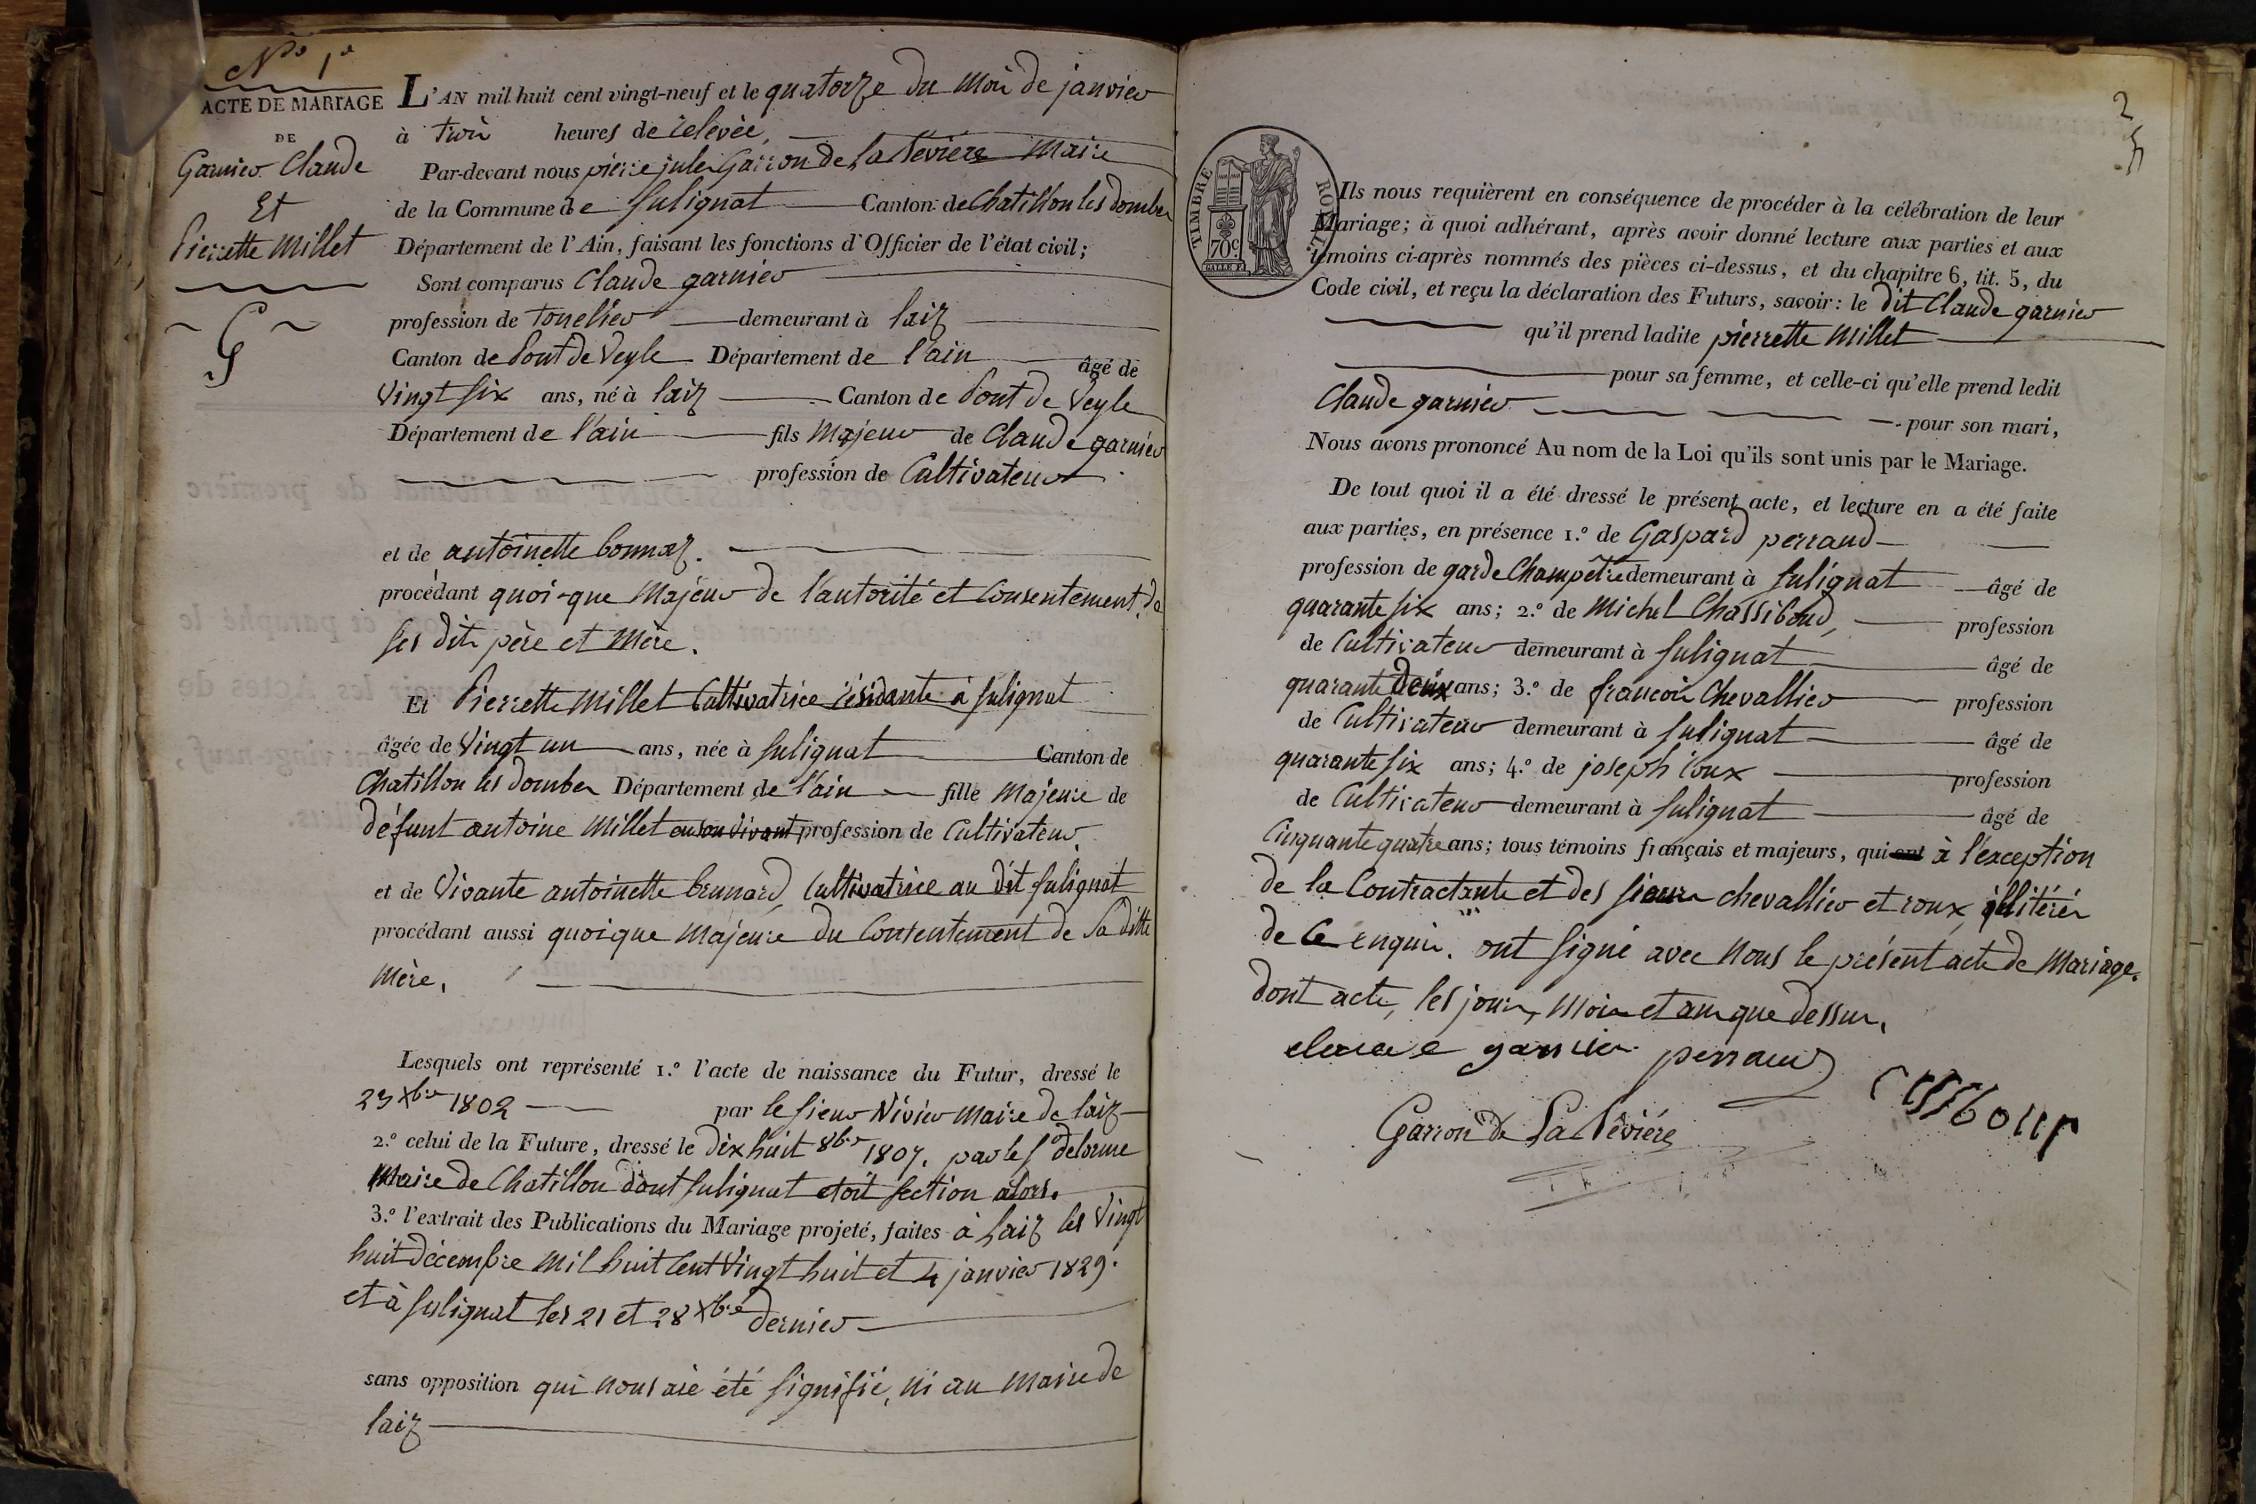 N.° 1.er
ACTE DE MARIAGE
DE
Garnier Claude
Et
Pierrette Millet
G
L'AN mil huit cent vingt-neuf et le quatorze du Mois de janvier
à trois heures de relevée,
Par-devant nous pierre jules Garron de La Bévière Maire
de la Commune de Sulignat Canton de Chatillon les dombes
Département de l'Ain, faisant les fonctions d'Officier de l'état civil;
Sont comparus Claude garnier
profession de tonellier demeurant à laiz
Canton de Pont de Veyle Département de l'ain âgé de
Vingt six ans, né à laiz Canton de Pont de Veyle
Département de l'ain fils Majeur de Claude garnier
profession de Cultivateur
et de antoinette bonnaz.
procédant quoi-que Majeur de l'autorité et Consentement de
ses dits père et Mère.
Et Pierrette Millet Cultivatrice résidante à Sulignat
âgée de Vingt un ans, née à Sulignat Canton de
Chatillon les dombes Département de l'ain fille Majeure de
défunt antoine Millet en son vivant profession de Cultivateur.
et de Vivante antoinette brunard, Cultivatrice au dit Sulignat
procédant aussi quoique Majeure du Consentement de Sa ditte
Mère,
Lesquels ont représenté 1.° l'acte de naissance du Futur, dressé le
23 Xbre 1802 par le Sieur Nivier Maire de laiz
2.° celui de la Future, dressé le dix huit 8bre 1807. par le Sr delorme
Maire de Chatillon dont Sulignat etoit section alors.
3.° l'extrait des Publications du Mariage projeté, faites à Laiz les Vingt
huit décembre Mil huit Cent Vingt huit et 4 janvier 1829.
et à Sulignat les 21 et 28 Xbre dernier
sans opposition qui nous aie été signifié, ni au Maire de
laiz
2
TIMBRE ROYAL
70c.
Ils nous requièrent en conséquence de procéder à la célébration de leur
Mariage; à quoi adhérant, après avoir donné lecture aux parties et aux
témoins ci-après nommés des pièces ci-dessus, et du chapitre 6, tit. 5, du
Code civil, et reçu la déclaration des Futurs, savoir: le dit Claude garnier
qu'il prend ladite pierrette Millet
pour sa femme, et celle-ci qu'elle prend ledit
Claude garnier pour son mari,
Nous avons prononcé Au nom de la Loi qu'ils sont unis par le Mariage.
De tout quoi il a été dressé le présent acte, et lecture en a été faite
aux parties, en présence 1.° de Gaspard perraud
profession de garde Champêtre demeurant à Sulignat âgé de
quarante six ans; 2.° de Michel Chassiboud, profession
de Cultivateur demeurant à Sulignat âgé de
quarante Deux ans; 3.° de francois Chevallier profession
de Cultivateur demeurant à Sulignat âgé de
quarante six ans; 4.° de joseph roux profession
de Cultivateur demeurant à Sulignat âgé de
Cinquante quatre ans; tous témoins français et majeurs, qui ont à l'exception
de la Contractante et des Sieurs chevallier et roux, illitérés
de Ce enquis. ont signé avec Nous le présent acte de Mariage.
dont acte, les jour, Mois et an que dessus.
claude garnier perraud
Garron de La Bévière